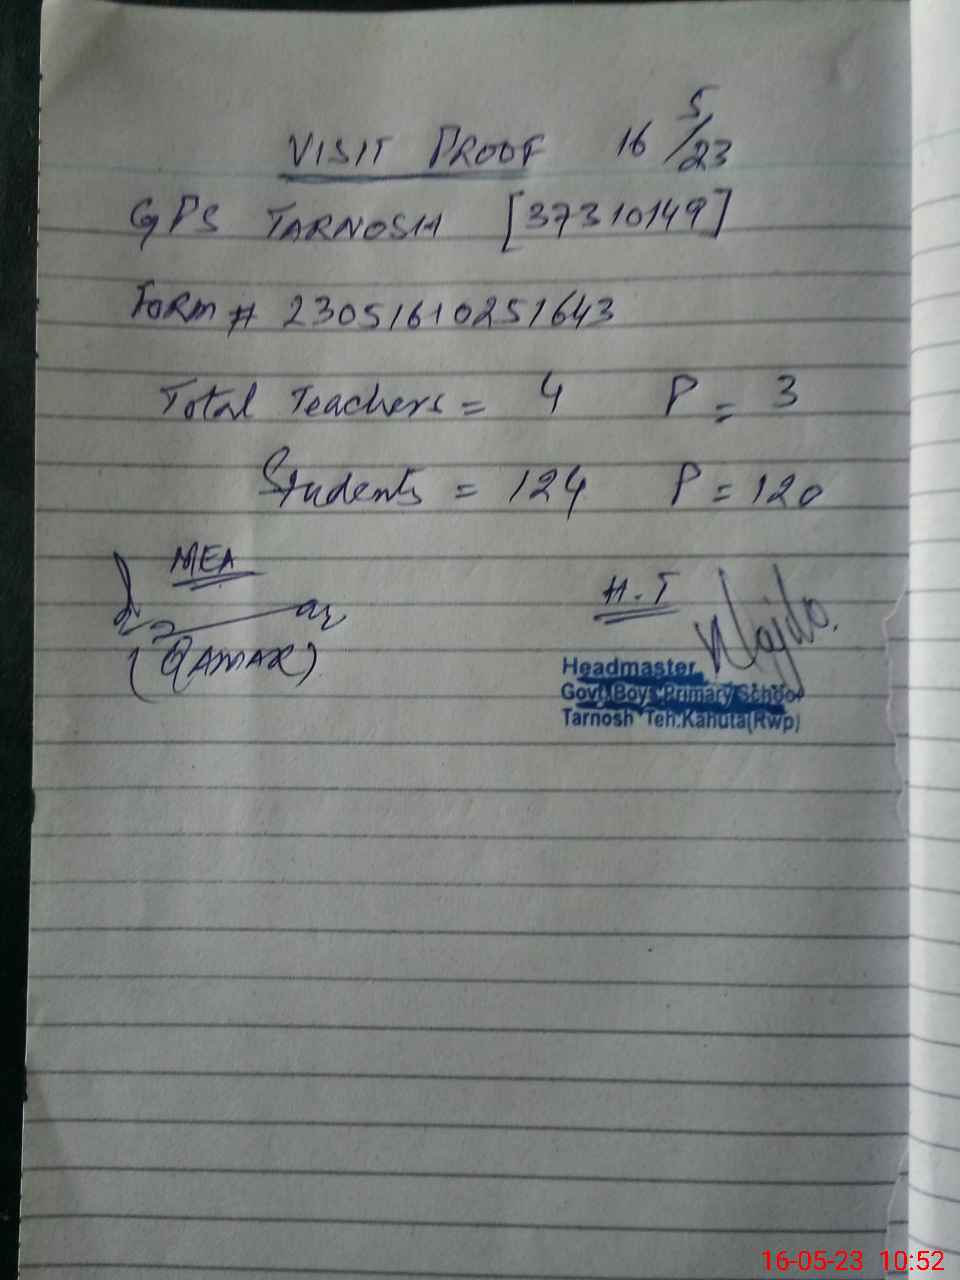 VISIT PROOF 16/5/23
GPS TARNOSH [37310149]
Form # 23051610251643
Total Teachers = 4 P = 3
Students = 124 P = 120
MEA
(QAMAR)
H.T
Headmaster
Govt. Boys Primary School
Tarnosh Teh.Kahuta(Rwp)
16-05-23 10:52